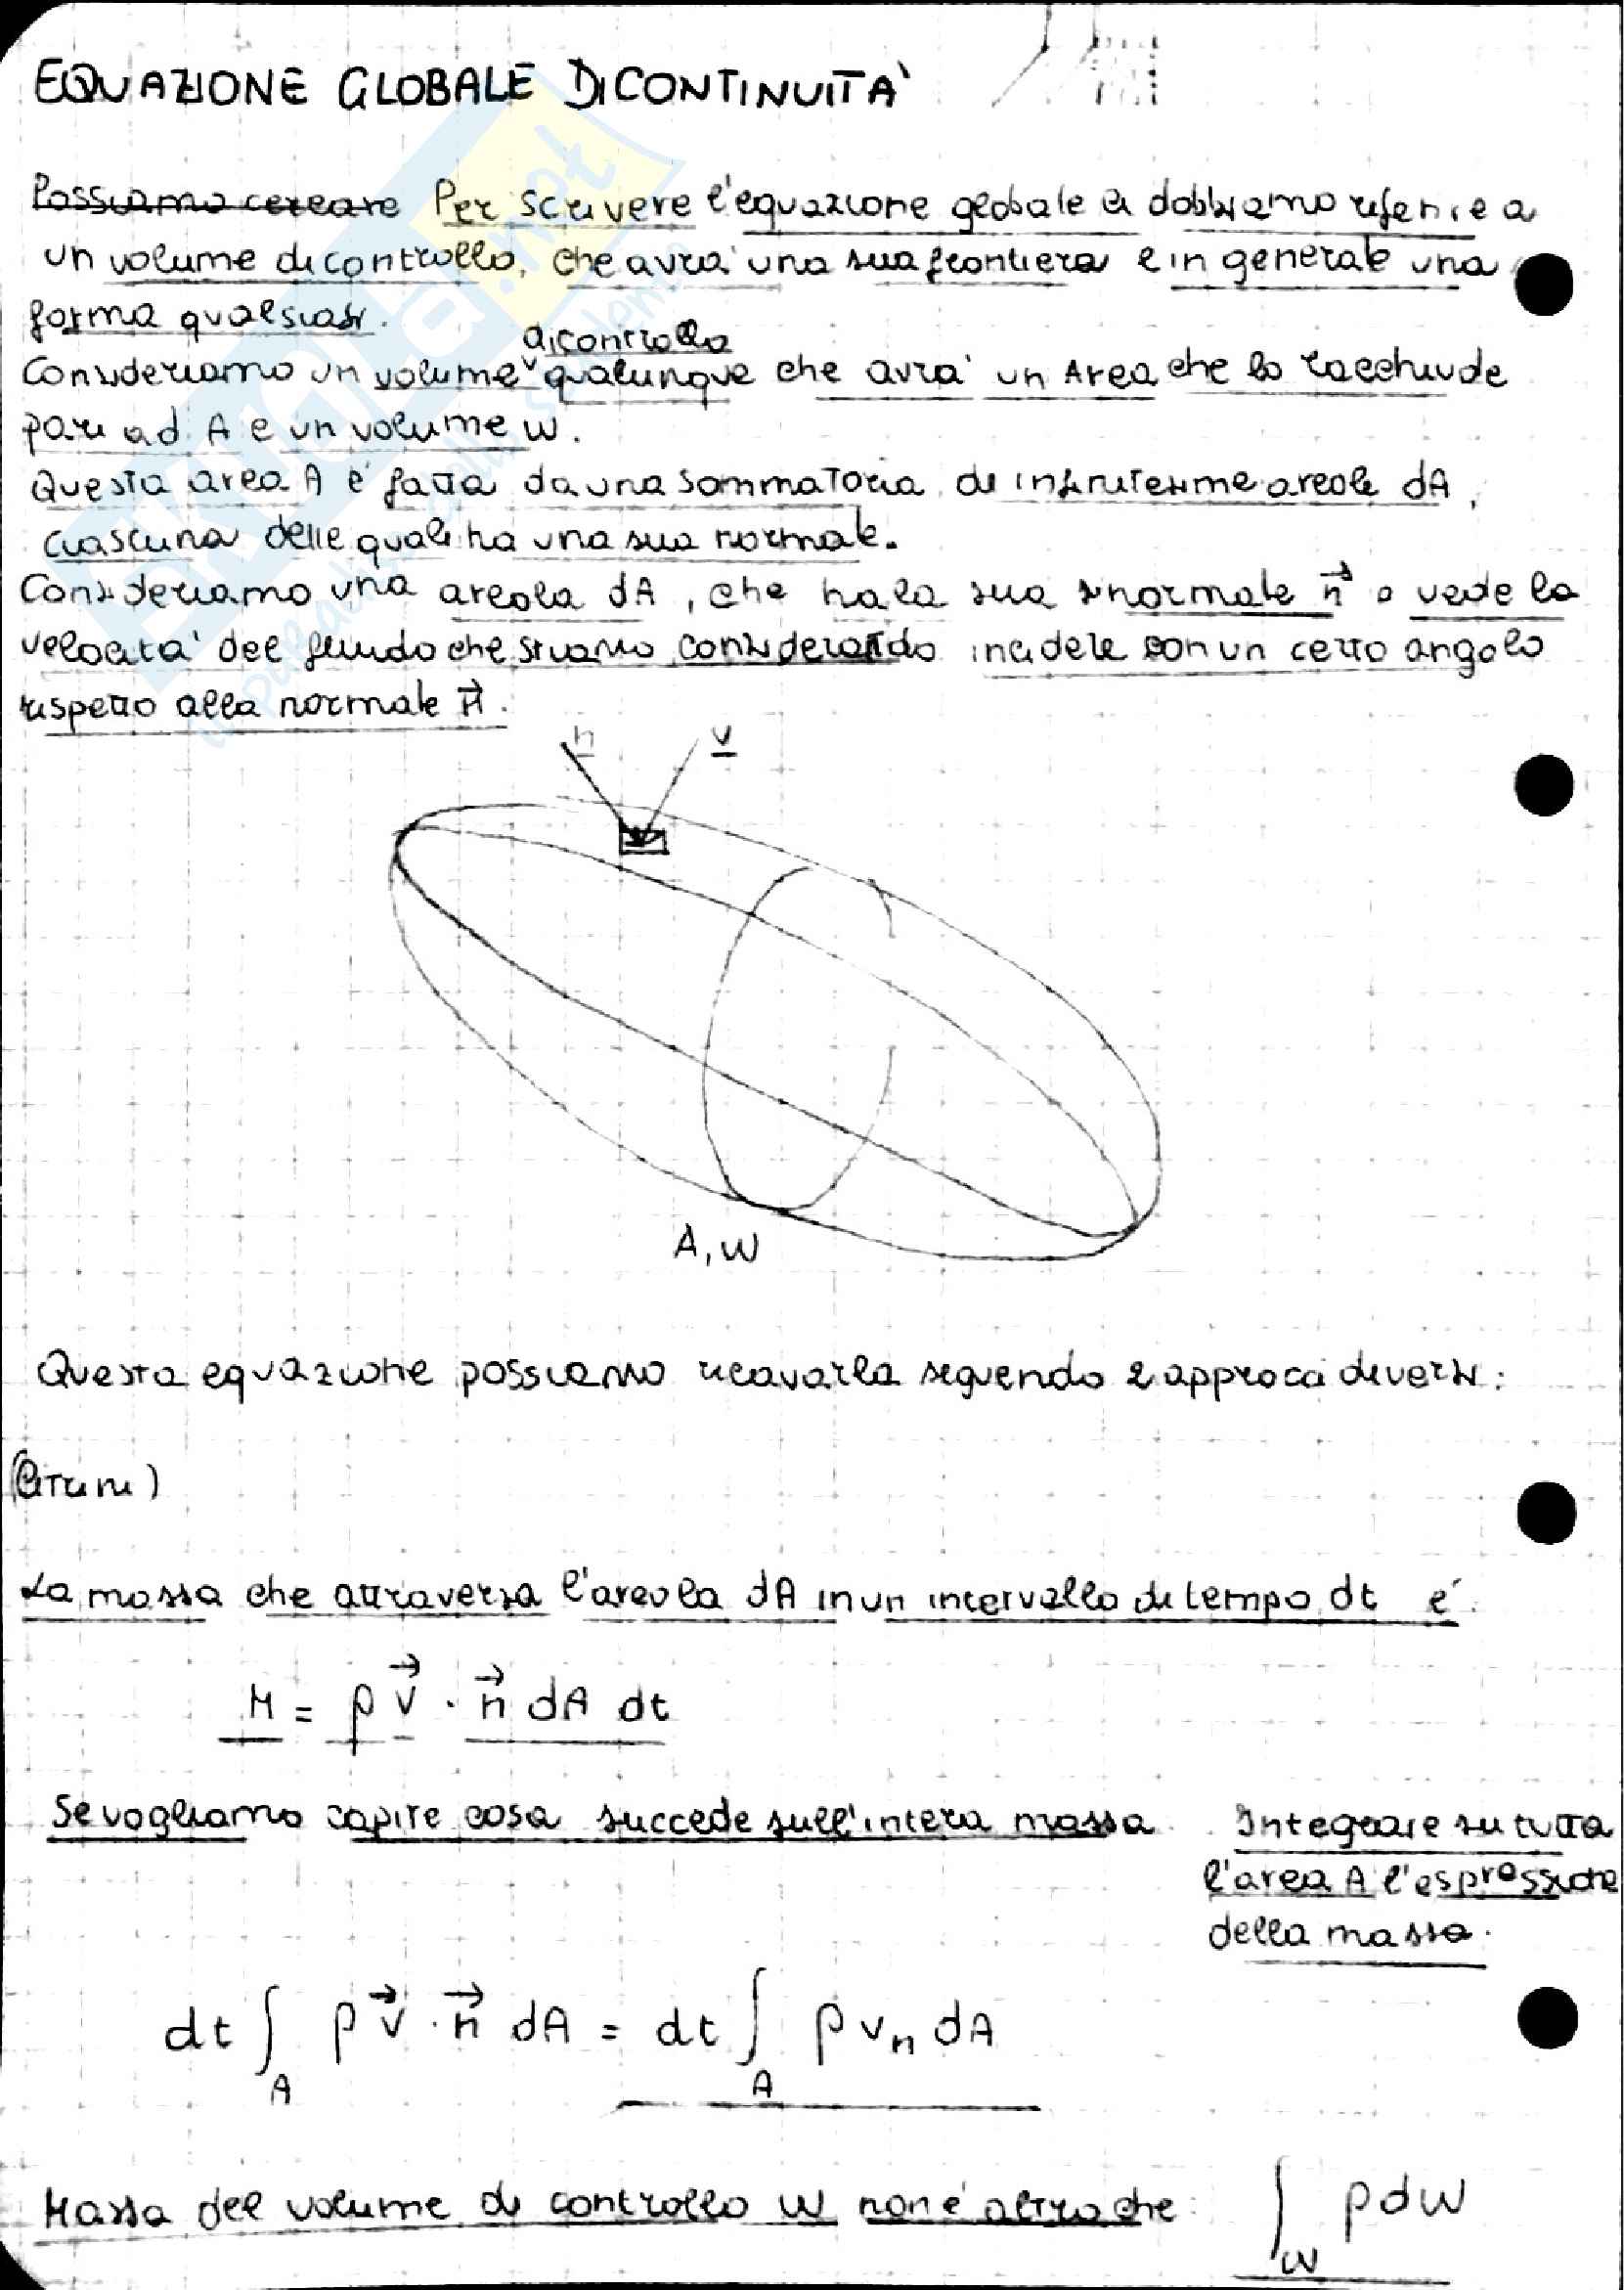 EQUAZIONE GLOBALE DI CONTINUITA'
Possiamo cercare Per scrivere l'equazione globale ci dobbiamo riferire a
un volume di controllo, che avra' una sua frontiera e in generale una
forma qualsiasi.
di controllo
Consideriamo un volume qualunque che avra' un Area che lo racchiude
pari ad A e un volume W.
Questa area A e' fatta da una sommatoria di infinitesime areole dA,
ciascuna delle quali ha una sua normale.
Consideriamo una areola dA, che ha la sua normale n⃗ e vede la
velocita' del fluido che stiamo considerando incidere con un certo angolo
rispetto alla normale n⃗.
n v
A, W
Questa equazione possiamo ricavarla seguendo 2 approcci diversi:
(Citrini)
La massa che attraversa l'areola dA in un intervallo di tempo dt e':
M = ρ v⃗ · n⃗ dA dt
Se vogliamo capire cosa succede sull'intera massa Integrare su tutta
l'area A l'espressione
della massa.
dt ∫_A ρ v⃗ · n⃗ dA = dt ∫_A ρ vₙ dA
Massa del volume di controllo W non e' altro che: ∫_W ρ dW